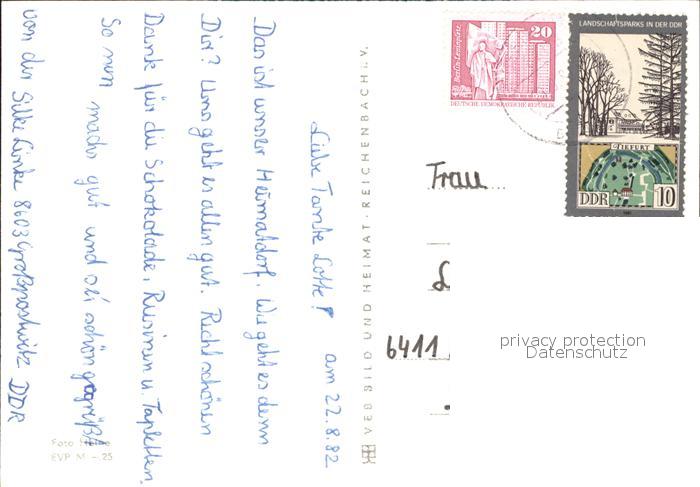 Liebe Tante Lotte! am 22.8.82
Das ist unser Heimatdorf. Wie geht es denn
Dir? Uns geht es allen gut. Recht schönen
Dank für die Schokolade, Rusinen u. Tapletten.
So nun machs gut und sei schön gegrüßt
von der Silke Linke 8603 Großpostwitz DDR
Foto
EVP M –.25
VEB BILD UND HEIMAT · REICHENBACH i. V.
Berlin-Leninplatz
20
DEUTSCHE DEMOKRATISCHE REPUBLIK
LANDSCHAFTSPARKS IN DER DDR
TIEFURT
DDR 10
1981
Frau
L
6411
privacy protection
Datenschutz